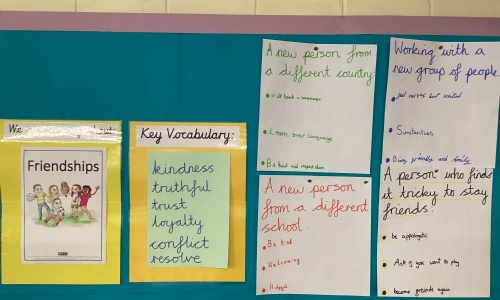 We
Friendships
Key Vocabulary:
kindness
truthful
trust
loyalty
conflict
resolve
A new person from
a different country:
a language
Learn their language
Be kind and
A new person
from a different
school:
Be kind
Welcoming
Helpful
Working with a
new group of people
but excited
Similarities
Being friendly and
A person who finds
it tricky to stay
friends:
be apologetic
Ask if you want to play
become friends again